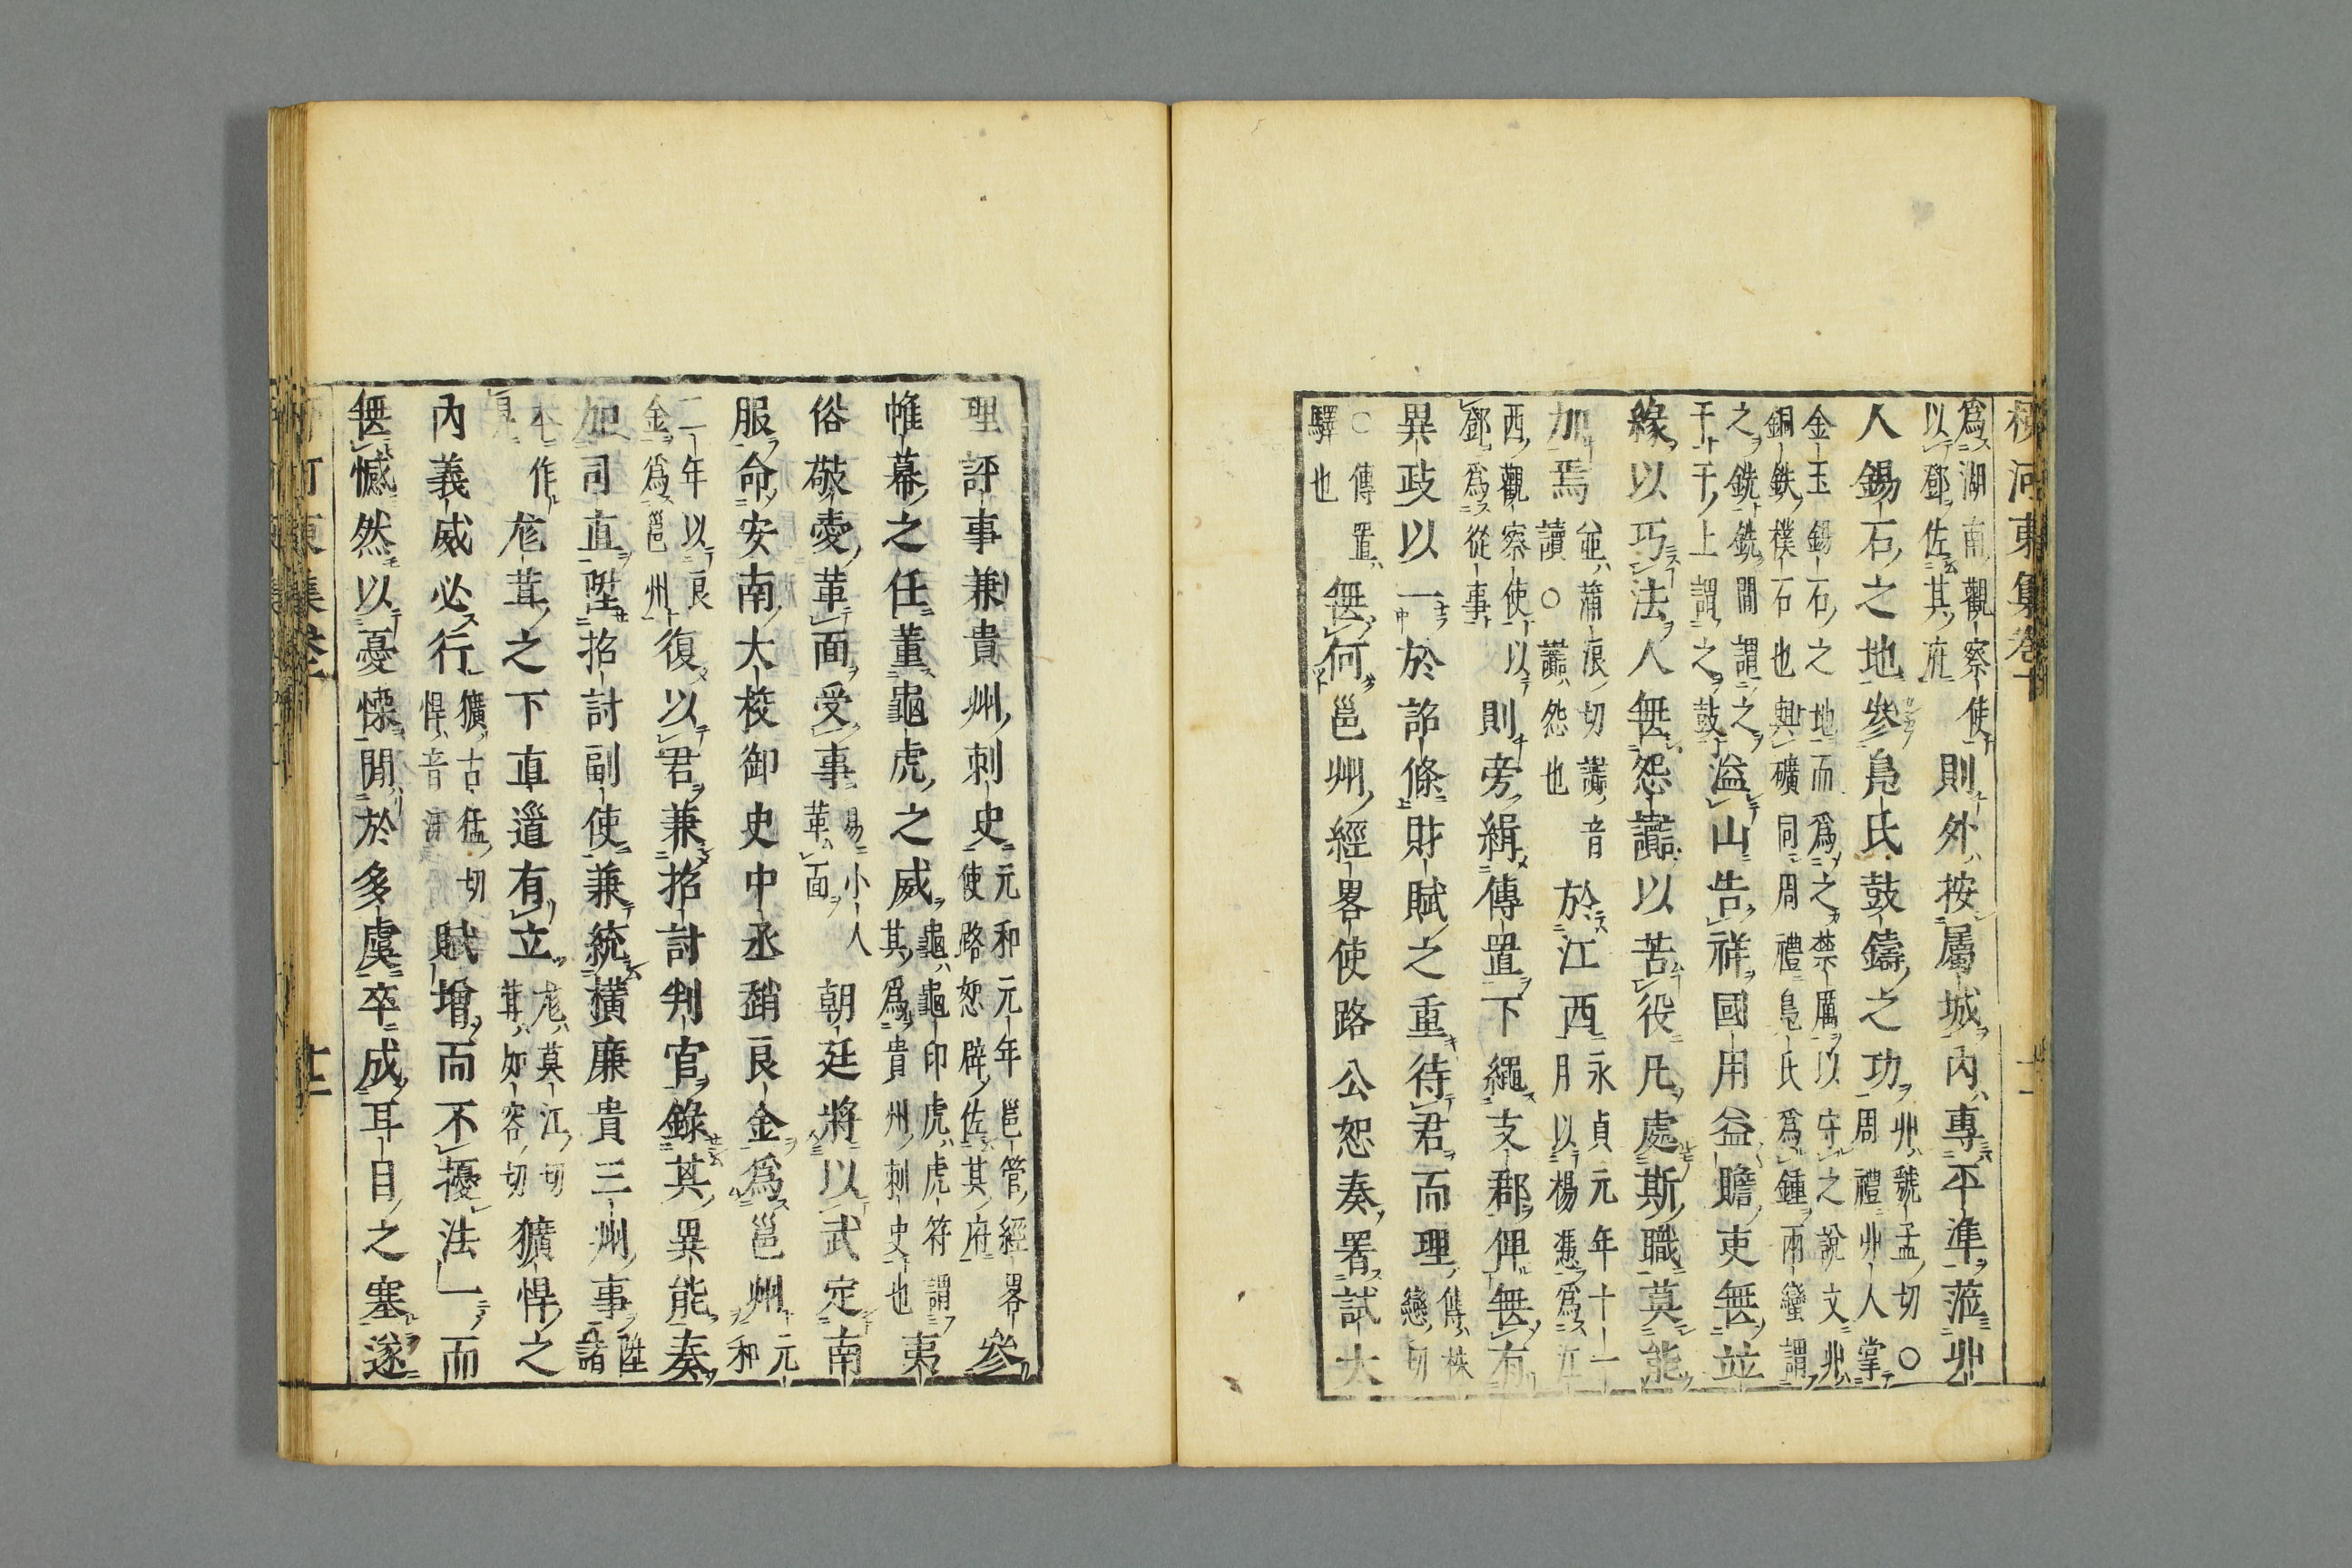 柳河東集卷十
十一
爲湖南觀察使
以鄧佐其府
則外按屬城內專平準蒞丱
人錫石之地參鳧氏鼓鑄之功
丱虢孟切○
周禮丱人掌
金玉錫石之地而爲之禁厲以守之說文丱
銅鉄樸石也與礦同周禮鳧氏爲鍾兩欒謂
之銑銑間謂之
于于上謂之鼓
溢山告祥國用益贍吏無並
緣以巧法人無怨讟以苦役凡處斯職莫能
加焉
並蒲浪切讟音
讀○讟怨也
於江西
永貞元年十一
月以楊憑爲江
西觀察使以
鄧爲從事
則旁緝傳置下繩支郡俾無有
異政以一於詔條財賦之重待君而理
傳株
戀切
○傳置
驛也
無何邕州經畧使路公恕奏署試大
理評事兼貴州刺史
元和元年邕管經畧
使路恕辟佐其府
參
帷幕之任董龜虎之威
龜龜印虎虎符謂
其爲貴州刺史也
夷
俗敬愛革面受事
易小人
革面
朝廷將以武定南
服命安南大校御史中丞趙良金爲邕州
元
和
二年以良
金爲邕州
復以君兼招討判官錄其異能奏
加司直陞招討副使兼統橫廉貴三州事
陞
諸
本作
見
尨茸之下直道有立
尨莫江切
茸如容切
獷悍之
內義威必行
獷古猛切
悍音汗
賦增而不擾法一而
無憾然以憂慄閒於多虞卒成耳目之塞遂
河東集卷十
十二